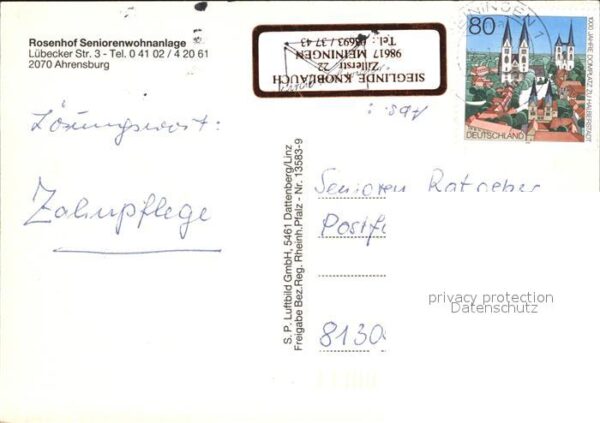 Rosenhof Seniorenwohnanlage
Lübecker Str. 3 - Tel. 0 41 02 / 4 20 61
2070 Ahrensburg
Lösungswort:
Zahnpflege
SIEGLINDE KNOBLAUCH
Zillerstr. 22
98617 MEININGEN
Tel.: 03693 / 37 43
Abs.:
S. P. Luftbild GmbH, 5461 Dattenberg/Linz
Freigabe Bez.Reg. Rheinh.Pfalz - Nr. 13583-9
MEININGEN 1
80
1000 JAHRE DOMPLATZ ZU HALBERSTADT
DEUTSCHLAND
Senioren Ratgeber
Postf
8130
privacy protection
Datenschutz